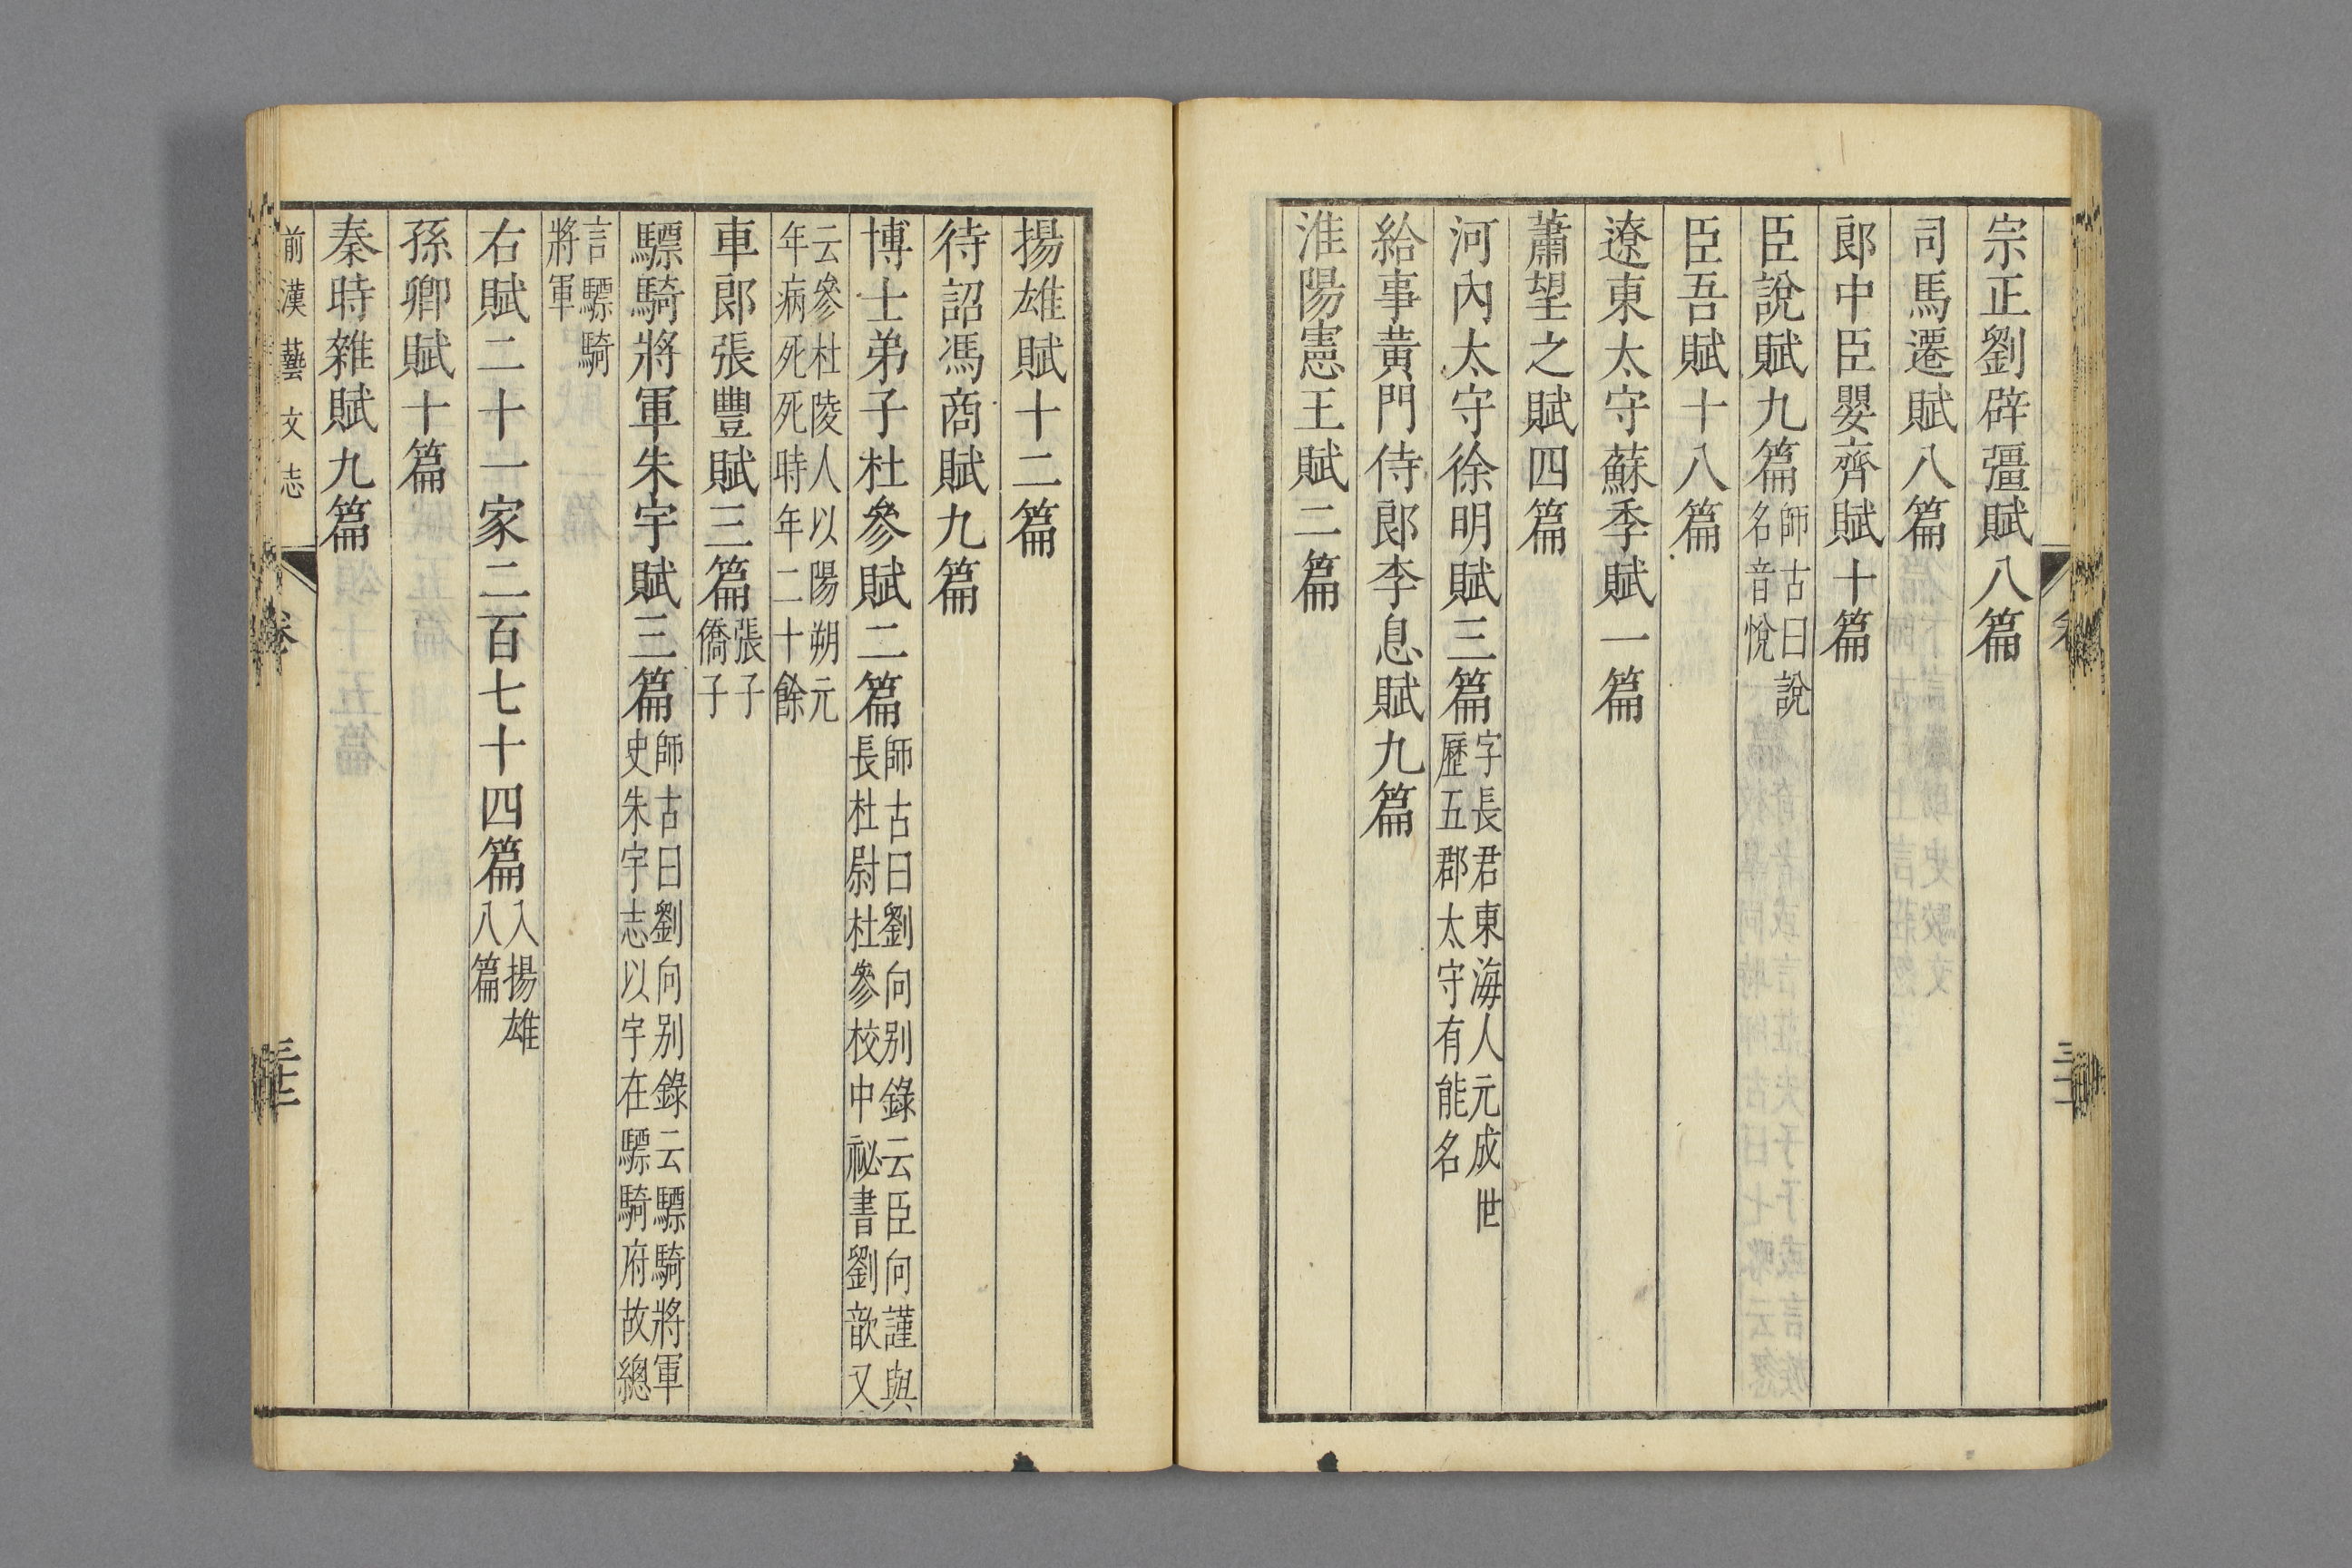 宗正劉辟彊賦八篇
司馬遷賦八篇
郎中臣嬰齊賦十篇
臣說賦九篇師古曰說名音悅
臣吾賦十八篇
遼東太守蘇季賦一篇
蕭望之賦四篇
河內太守徐明賦三篇字長君東海人元成世歷五郡太守有能名
給事黃門侍郎李息賦九篇
淮陽憲王賦二篇
揚雄賦十二篇
待詔馮商賦九篇
博士弟子杜參賦二篇師古曰劉向別錄云臣向謹與長杜尉杜參校中祕書劉歆又
云參杜陵人以陽朔元年病死死時年二十餘
車郎張豐賦三篇張子僑子
驃騎將軍朱宇賦三篇師古曰劉向別錄云驃騎將軍史朱宇志以宇在驃騎府故總
言驃騎將軍
右賦二十一家二百七十四篇入揚雄八篇
孫卿賦十篇
秦時雜賦九篇
前漢藝文志 卷